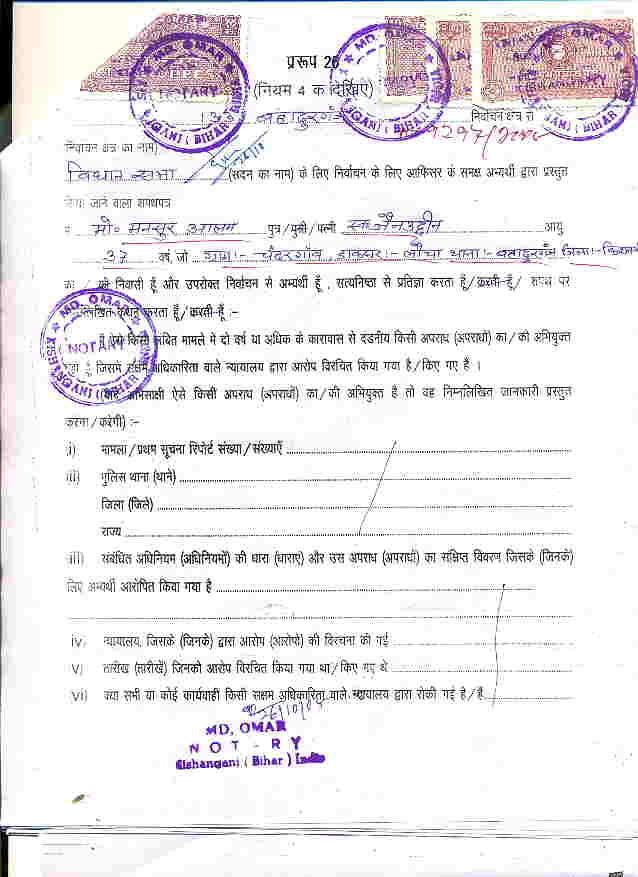 प्ररूप 26
(नियम 4 क देखिए)
13 बहादुरगंज निर्वाचन क्षेत्र से
निर्वाचन क्षेत्र का नाम)
विधान सभा (सदन का नाम) के लिए निर्वाचन के लिए आफिसर के समक्ष अभ्यर्थी द्वारा प्रस्तुत
किया जाने वाला शपथपत्र
मो० मनसुर आलम पुत्र/पुत्री/पत्नी स्व० जैनउद्दीन आयु
37 वर्ष, जो ग्राम:- चंदरगाँव, डाकघर:- लौचा थाना:- बहादुरगंज जिला:-
का / की निवासी हूँ और उपरोक्त निर्वाचन से अभ्यर्थी हूँ , सत्यनिष्ठा से प्रतिज्ञा करता हूँ/करती हूँ/ शपथ पर
लिखित कथन करता हूँ/करती हूँ :-
ऐसे किसी लंबित मामले मे दो वर्ष या अधिक के कारावास से दंडनीय किसी अपराध (अपराधों) का/की अभियुक्त
जिसमें सक्षम अधिकारिता वाले न्यायालय द्वारा आरोप विरचित किया गया है/किए गए है ।
(यदि अभिसाक्षी ऐसे किसी अपराध (अपराधों) का/की अभियुक्त है तो वह निम्नलिखित जानकारी प्रस्तुत
करेगा/करेगी) :-
i) मामला/प्रथम सूचना रिपोर्ट संख्या/संख्याएँ
ii) पुलिस थाना (थाने)
जिला (जिले)
राज्य
iii) संबंधित अधिनियम (अधिनियमों) की धारा (धाराए) और उस अपराध (अपराधों) का संक्षिप्त विवरण जिसके (जिनके)
लिए अभ्यर्थी आरोपित किया गया है
iv) न्यायालय, जिसके (जिनके) द्वारा आरोप (आरोपो) की विरचना की गई
v) तारीख (तारीखें) जिनको आरोप विरचित किया गया था/किए गए थे
vi) क्या सभी या कोई कार्यवाही किसी सक्षम अधिकारिता वाले न्यायालय द्वारा रोकी गई है/हैं
MD. OMAR
NOTARY
KISHANGANJ ( BIHAR )
MD, OMAR
N O T - R Y
Kishanganj ( Bihar ) India